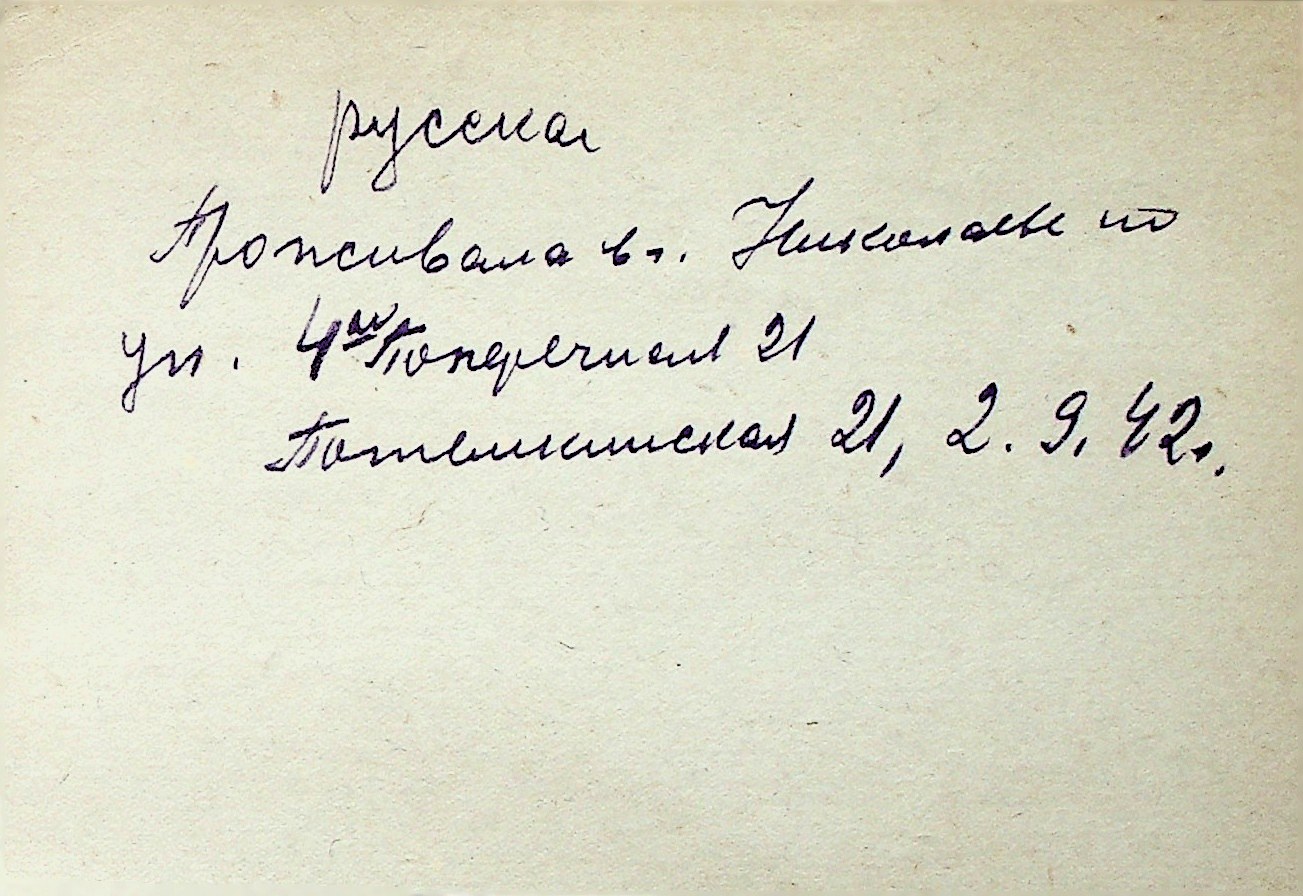 русская
Проживала в г. Николаеве по
ул. 4ая Поперечная 21
Потемкинская 21, 2. 9. 42г.